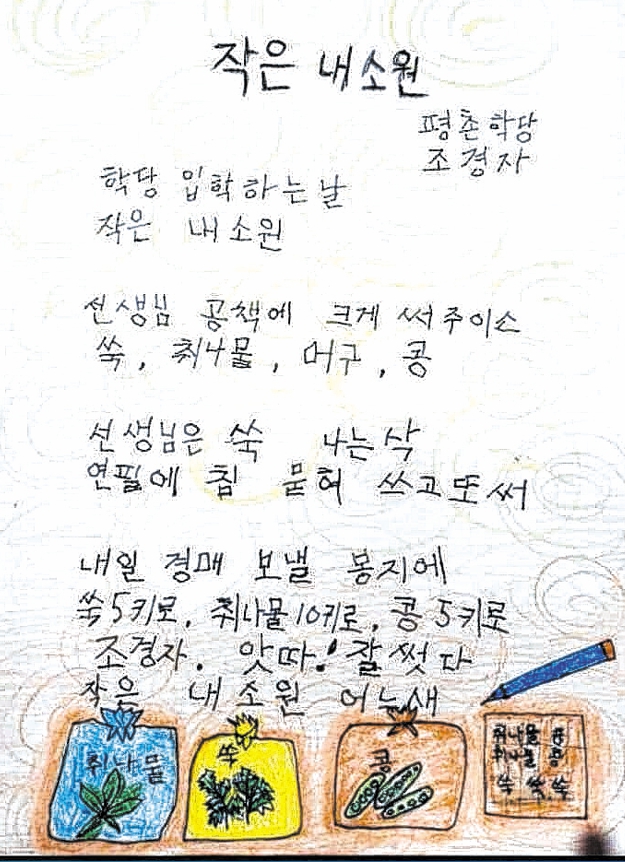 작은 내소원
평촌학당
조경자
학당 입학하는 날
작은 내소원
선생님 공책에 크게 써주이소
쑥, 취나물, 머구, 콩
선생님은 쑥 나는 삭
연필에 침 묻혀 쓰고 또 써
내일 경매 보낼 봉지에
쑥5키로, 취나물10키로, 콩5키로
조경자. 앗따! 잘썻다
작은 내소원 어느새
취나물
쑥
콩
취나물 콩
취나물 콩
쑥 쑥 쑥